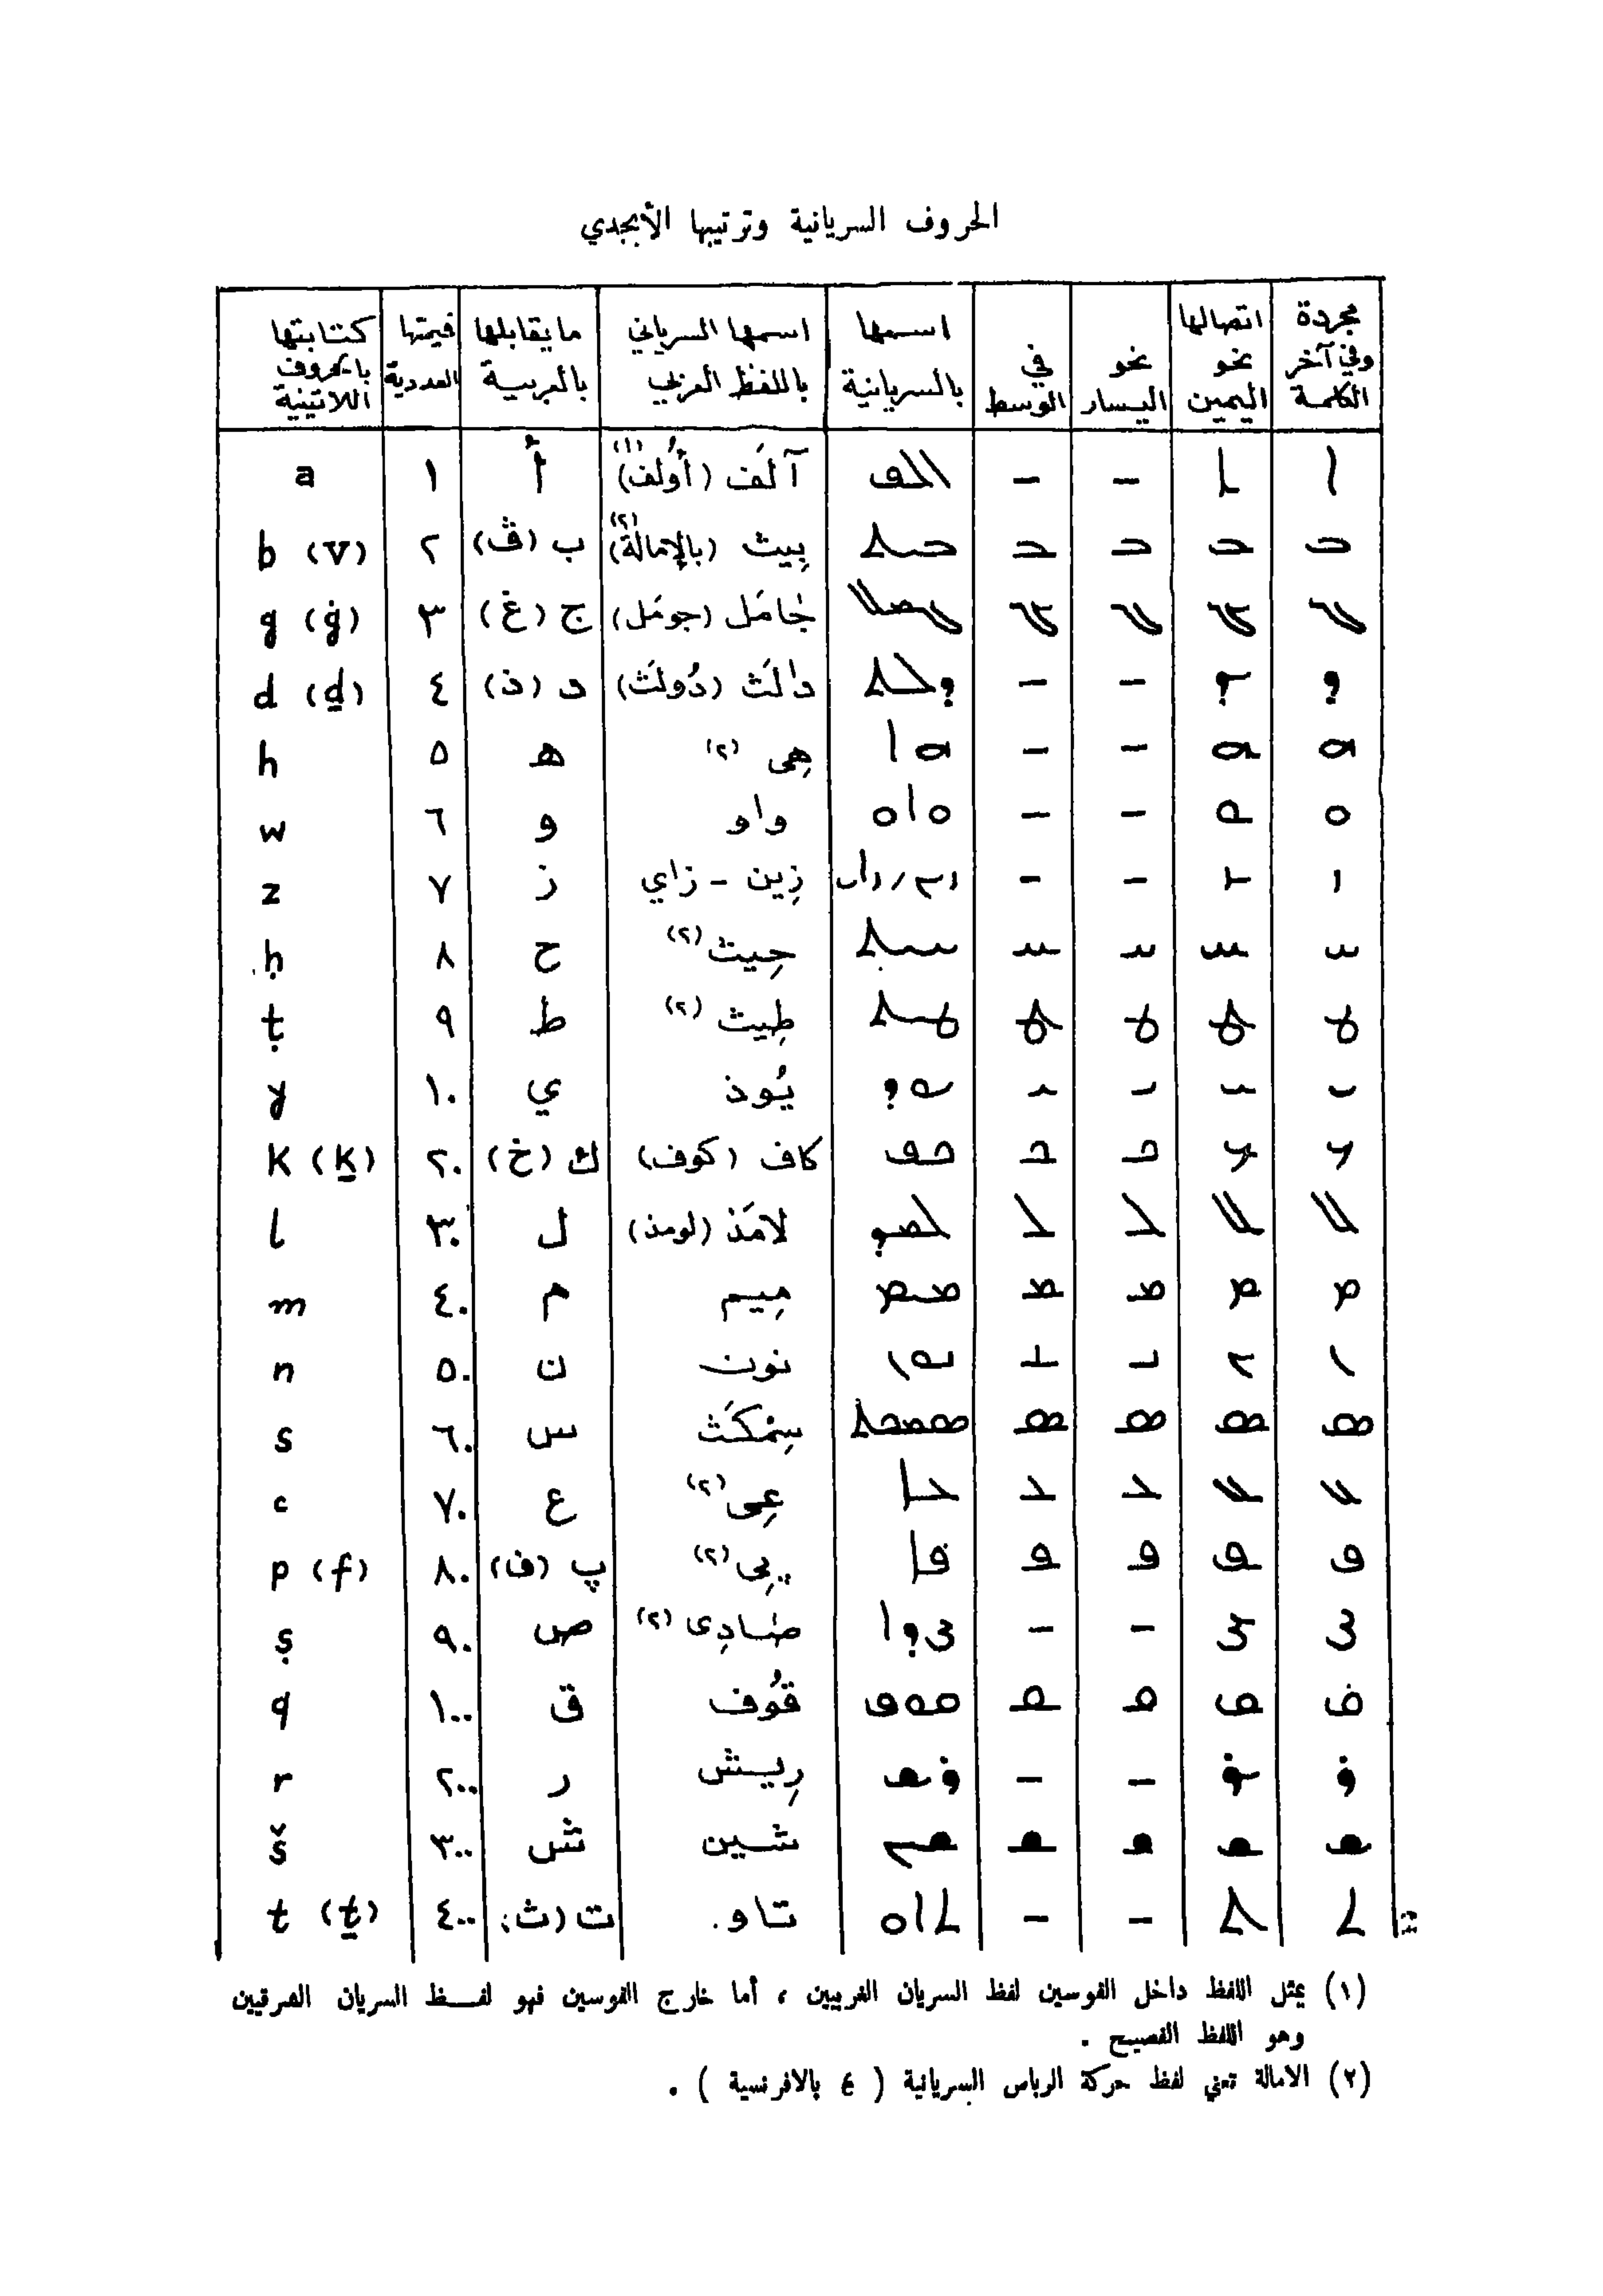 الحروف السريانية وترتيبها الأبجدي
مجردة وفي آخر الكلمة
اتصالها نحو اليمين
نحو اليسار
في الوسط
اسمها بالسريانية
اسمها السرياني باللفظ العربي
ما يقابلها بالعربية
قيمتها العددية
كتابتها بالحروف اللاتينية
ܐ ـܐ - - ܐܠܦ آلَف (أُولف) (١) أ ١ a
ܒ ـܒ ܒـ ـܒـ ܒܝܬ بِيث (بالإمالة) (٢) ب (ڤ) ٢ b (v)
ܓ ـܓ ܓـ ـܓـ ܓܡܠ جٰامَل (جومَل) ج (غ) ٣ g (ġ)
ܕ ـܕ - - ܕܠܬ دٰالَث (دُولَث) د (ذ) ٤ d (ḏ)
ܗ ـܗ - - ܗܐ هِى (٢) ه ٥ h
ܘ ـܘ - - ܘܐܘ واو و ٦ w
ܙ ـܙ - - ܙܝܢ / ܙܐܝ زِين - زاي ز ٧ z
ܚ ـܚ ܚـ ـܚـ ܚܝܬ حِيث (٢) ح ٨ ḥ
ܛ ـܛ ܛـ ـܛـ ܛܝܬ طِيث (٢) ط ٩ ṭ
ܝ ـܝ ܝـ ـܝـ ܝܘܕ يُوذ ي ١٠ y
ܟ ـܟ ܟـ ـܟـ ܟܦ كاف (كوف) ك (خ) ٢٠ K (ḵ)
ܠ ـܠ ܠـ ـܠـ ܠܡܕ لامَذ (لومذ) ل ٣٠ l
ܡ ـܡ ܡـ ـܡـ ܡܝܡ مِيم م ٤٠ m
ܢ ـܢ ܢـ ـܢـ ܢܘܢ نون ن ٥٠ n
ܣ ـܣ ܣـ ـܣـ ܣܡܟܬ سِمْكَث س ٦٠ s
ܥ ـܥ ܥـ ـܥـ ܥܐ عِى (٢) ع ٧٠ c
ܦ ـܦ ܦـ ـܦـ ܦܐ پِى (٢) پ (ف) ٨٠ p (f)
ܨ ـܨ - - ܨܕܐ صٰادِى (٢) ص ٩٠ ṣ
ܩ ـܩ ܩـ ـܩـ ܩܘܦ قُوف ق ١٠٠ q
ܪ ـܪ - - ܪܫ رِيش ر ٢٠٠ r
ܫ ـܫ ܫـ ـܫـ ܫܝܢ شين ش ٣٠٠ š
ܬ ـܬ - - ܬܐܘ تاو. ت (ث) ٤٠٠ t (ṯ)
(١) يمثل اللفظ داخل القوسين لفظ السريان الغربيين ، أما خارج القوسين فهو لفــظ السريان الشرقيين
وهو اللفظ الفصيح .
(٢) الامالة تعني لفظ حركة الرباص السريانية ( é بالافرنسية ) .